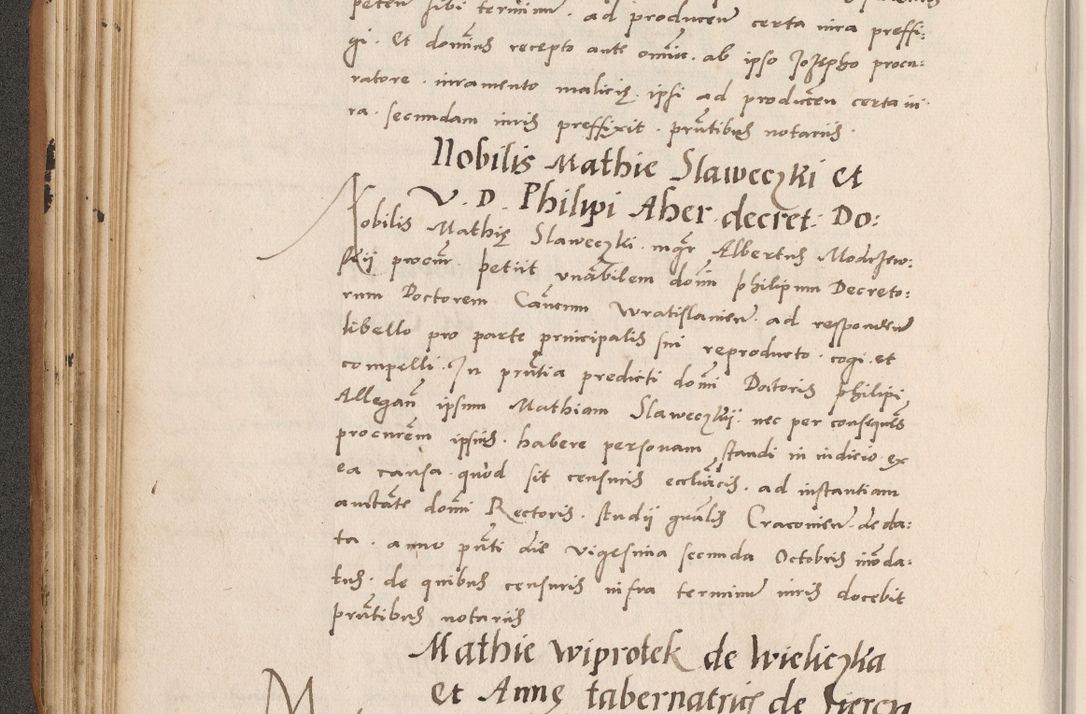 peteñ sibi terminum. ad producenꝰ certa iura preffi:
gi. Et dominus recepto ante omnia. ab ipso Jozepho procu:
ratore. iuramento malicię. ipsi ad produceñ certa iu:
ra. secundam iuris preffixit. pñtibus notariis.
Nobilis Mathie Slaweczki et
V. D. Philipi Aher. decret: Do:
Nobilis Mathię Slaweczki. mgr Albertus Modrzew:
skij procur. petiit vnabilem domi philipum Decreto:
rum Doctorem Cañcum Wratislaniens. ad respondenꝰ
libello pro parte principalis sui reproducto. cogi. et
compelli. In pñtia predicti domi Doctoris philipi,
Allegañ ipsum Mathiam Slaweczkij. nec per consequens
procurem ipsius. habere personam standi in iudicio. ex
ea causa. quod sit censuris eccliacis. ad instantiam
auctate domi Rectoris. studij gnalis Cracoviens. de da:
ta. anno pñti die vigesima secunda Octobris inoda:
tus. de quibus censuris infra terminum iuris docebit
pñtibus notariis
Mathie wiprotek de wieliczka
et Annę tabernatricis de